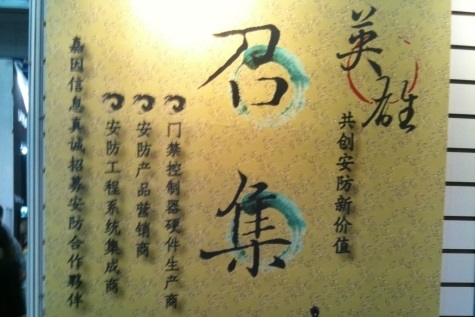 英雄
共创安防新价值
召集
门禁控制器硬件生产商
安防产品营销商
安防工程系统集成商
嘉因信息真诚招募安防合作夥伴